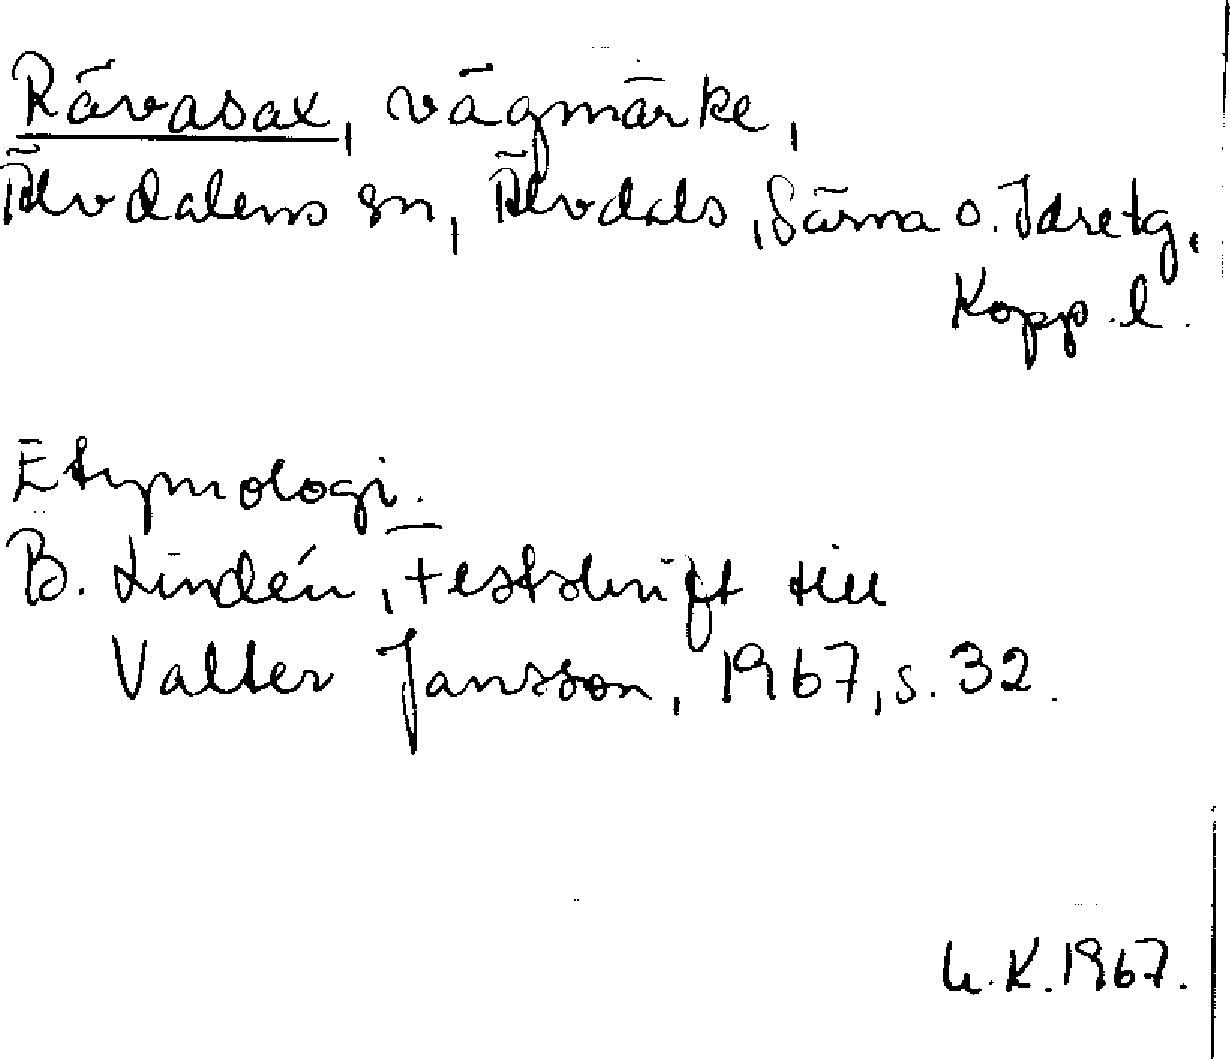 Rävasax, vägmärke,
Älvdalens sn, Älvdals, Särna o. Idretg,
Kopp. l.
Etymologi.
B. Lindén, Festskrift till
Valter Jansson, 1967, s. 32.
U.K. 1967.